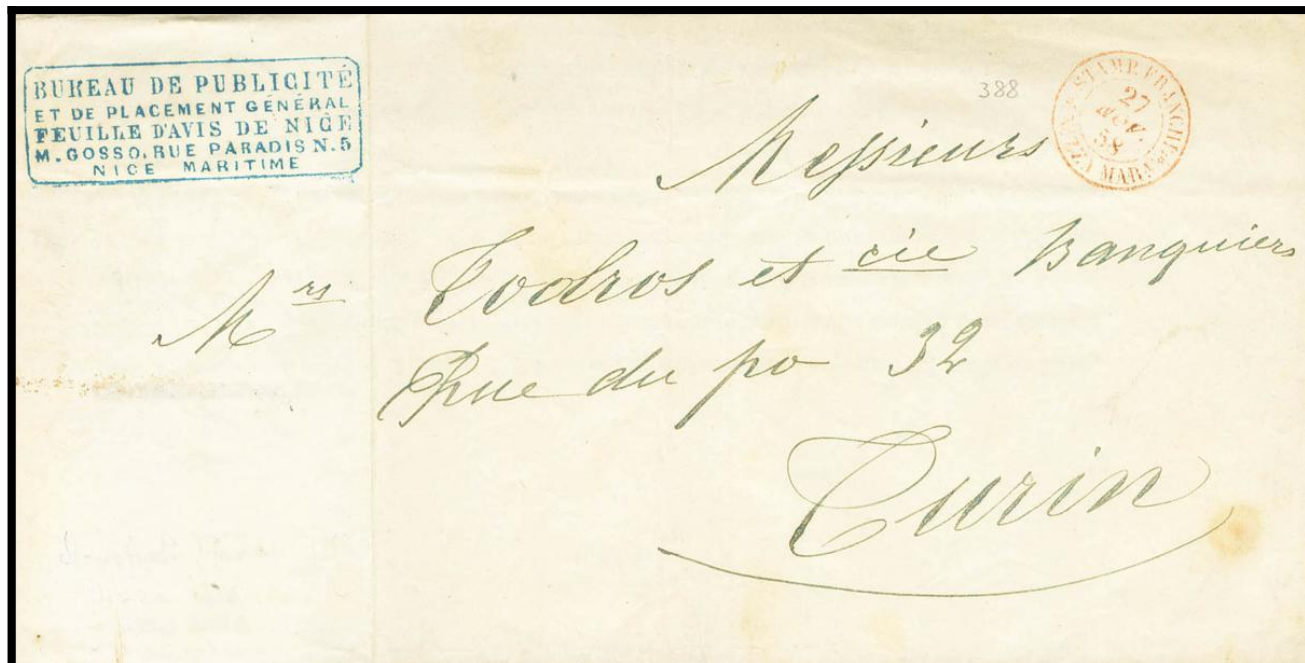 BUREAU DE PUBLICITÉ
ET DE PLACEMENT GÉNÉRAL
FEUILLE D'AVIS DE NICE
M. GOSSO, RUE PARADIS N. 5
NICE MARITIME
388
STAMP. FRANCHE
27
NOV.
58
NIZZA MARA
Messieurs
Mrs Todros et cie Banquiers
Rue du po 32
Turin